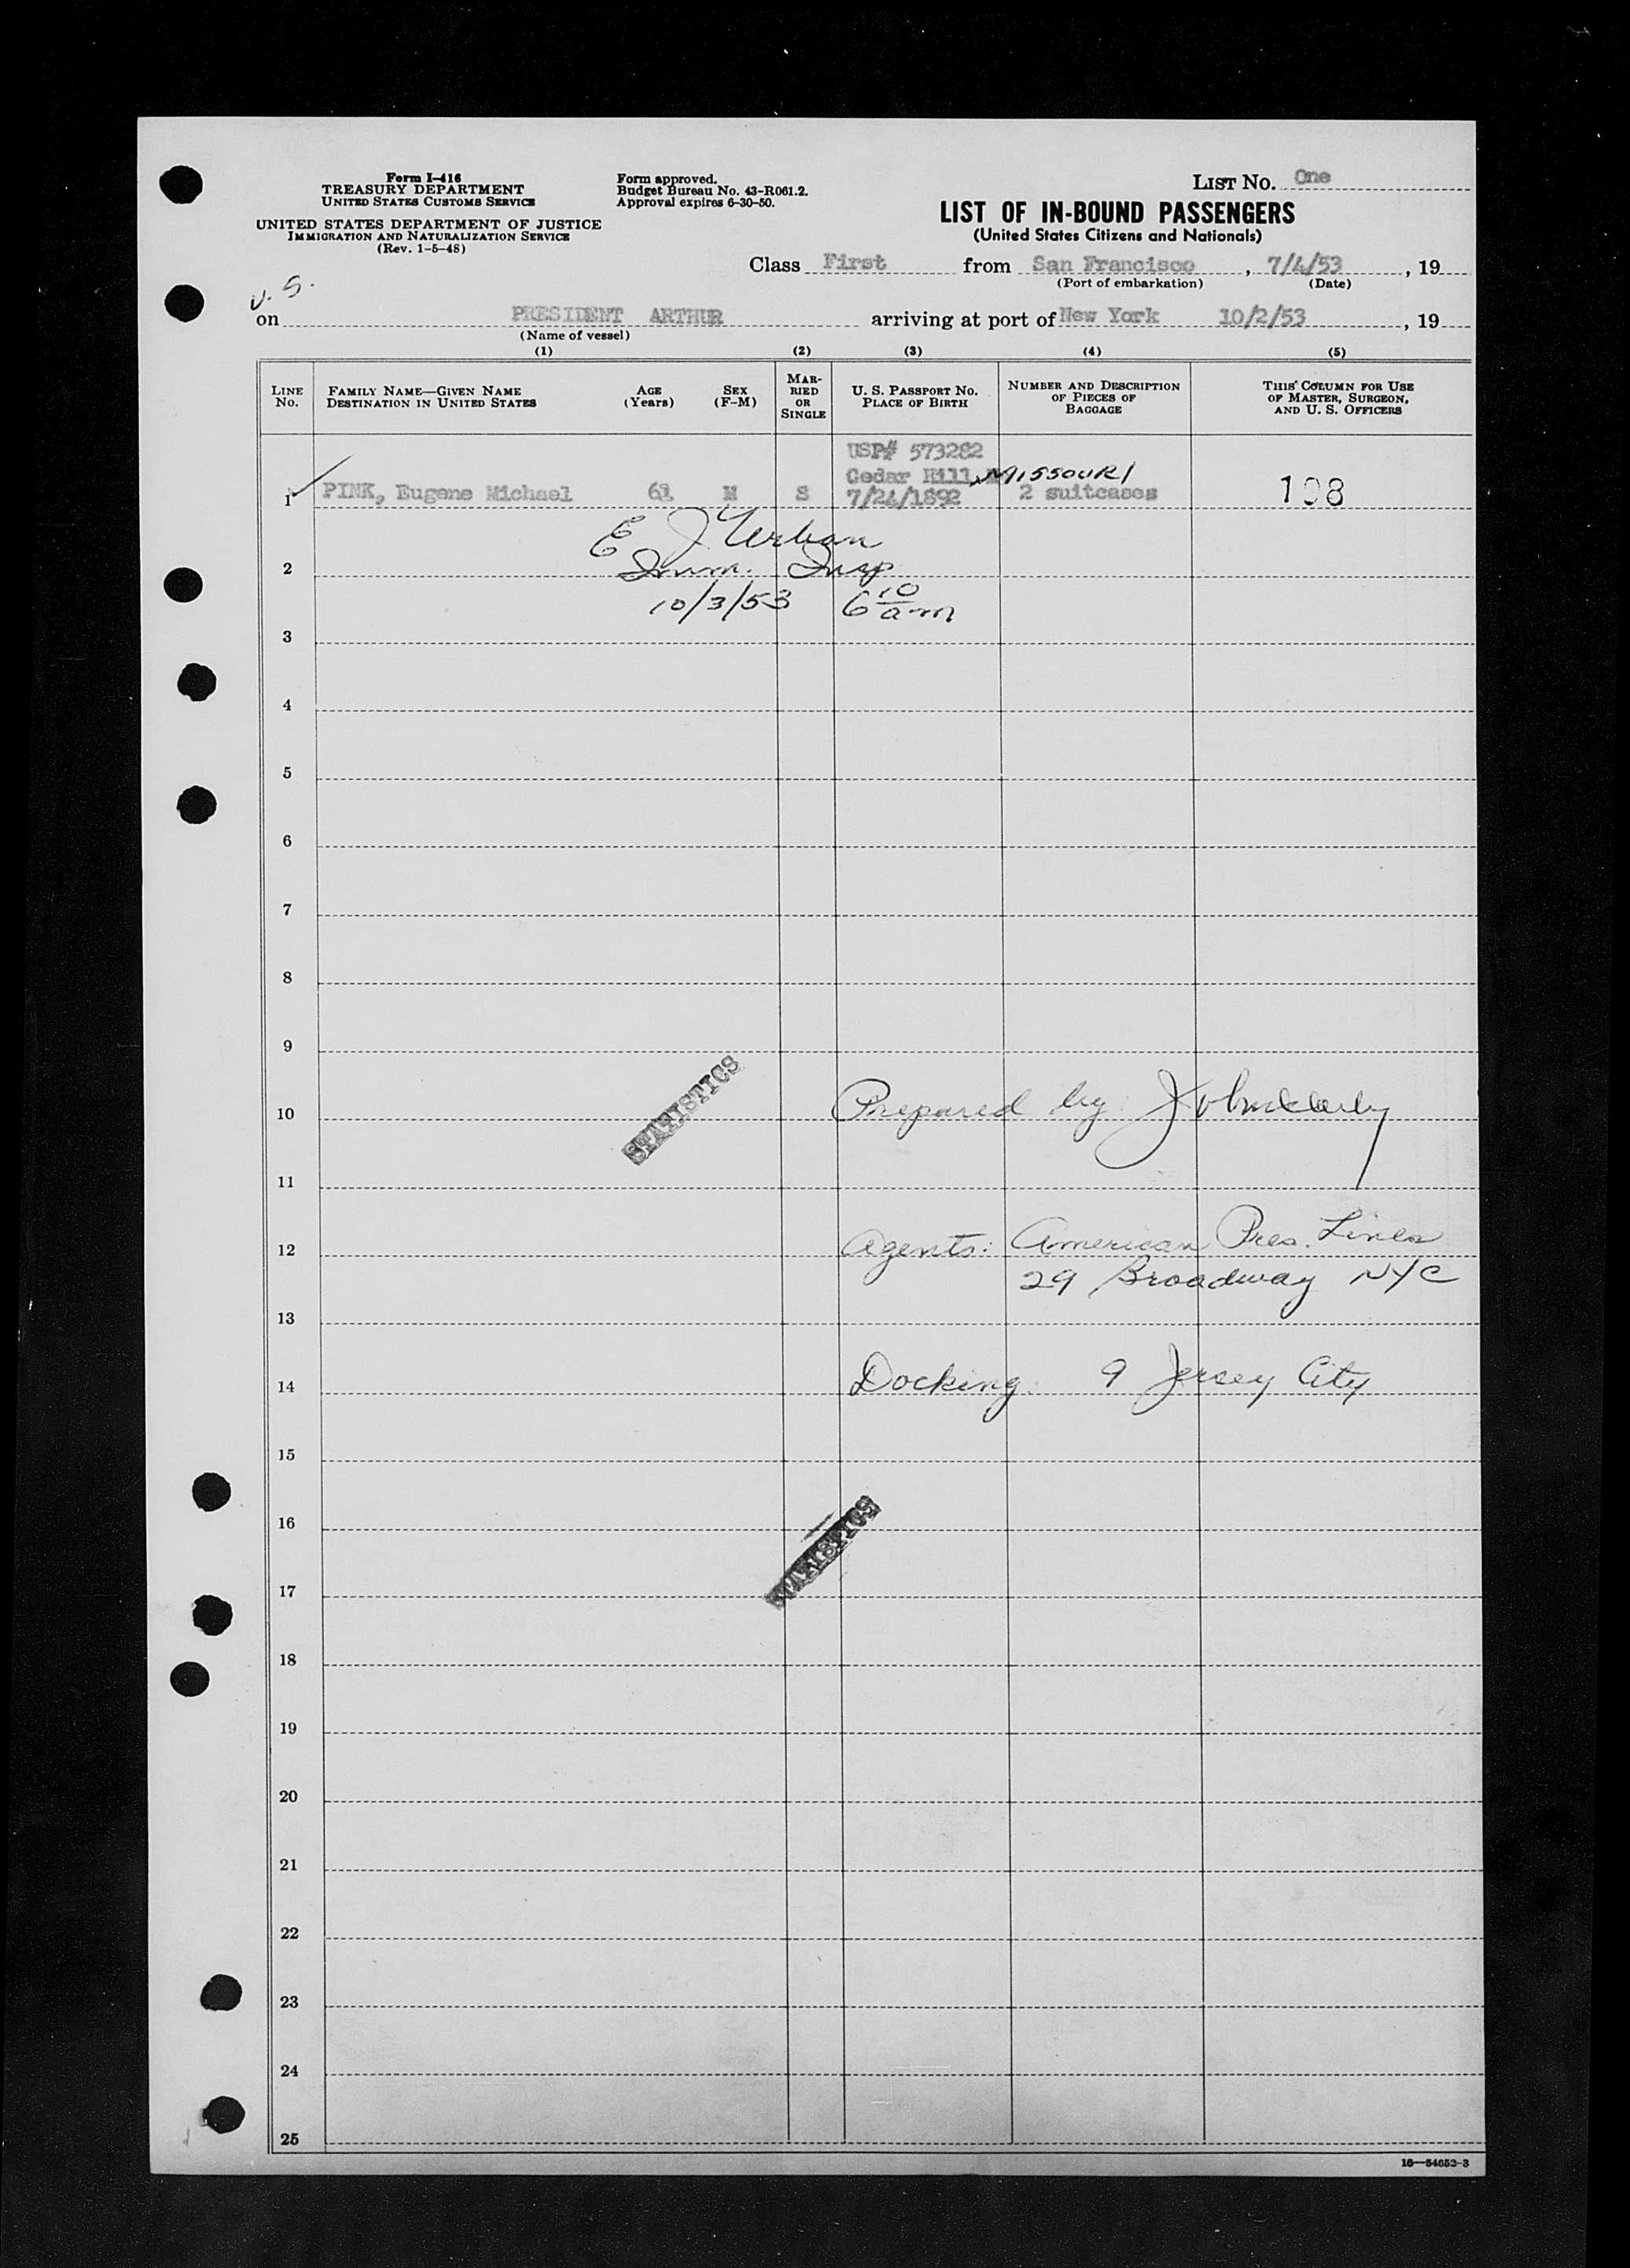 Form I-416
TREASURY DEPARTMENT
UNITED STATES CUSTOMS SERVICE
UNITED STATES DEPARTMENT OF JUSTICE
IMMIGRATION AND NATURALIZATION SERVICE
(Rev. 1-5-48)
Form approved.
Budget Bureau No. 43-R061.2.
Approval expires 6-30-50.
LIST NO. One
LIST OF IN-BOUND PASSENGERS
(United States Citizens and Nationals)
Class First from San Francisco, 7/4/53, 19
(Port of embarkation) (Date)
U. S.
on PRESIDENT ARTHUR arriving at port of New York 10/2/53, 19
(Name of vessel)
(1) (2) (3) (4) (5)
LINE NO.
FAMILY NAME—GIVEN NAME
DESTINATION IN UNITED STATES
AGE (Years)
SEX (F-M)
MARRIED OR SINGLE
U. S. PASSPORT NO.
PLACE OF BIRTH
NUMBER AND DESCRIPTION OF PIECES OF BAGGAGE
THIS COLUMN FOR USE OF MASTER, SURGEON, AND U. S. OFFICERS
USP# 573282
Cedar Hill, MISSOURI
1 PINK, Eugene Michael 61 M S 7/24/1892 2 suitcases 108
E J Urban
2 Imm. Insp
10/3/53 6 10 am
3
4
5
6
7
8
9
STATISTICS
10 Prepared by:
11
12 Agents: American Pres. Lines
29 Broadway NYC
13
14 Docking: 9 Jersey City
15
16
STATISTICS
17
18
19
20
21
22
23
24
25
16—54652-3